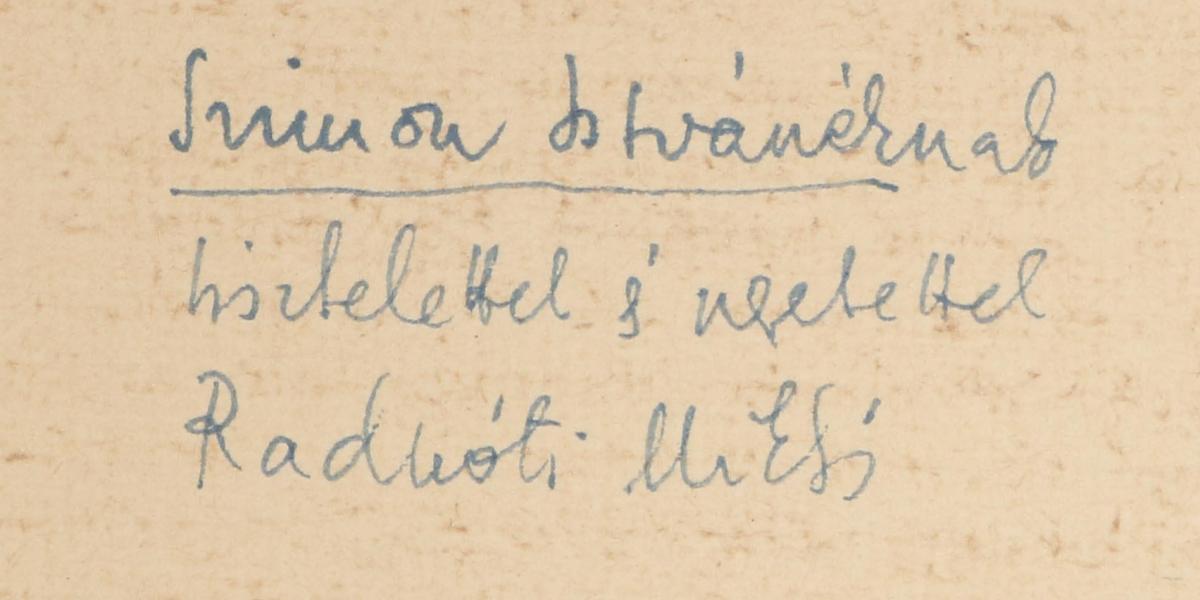 Simon Istvánéknak
tisztelettel és szeretettel
Radnóti Miklós